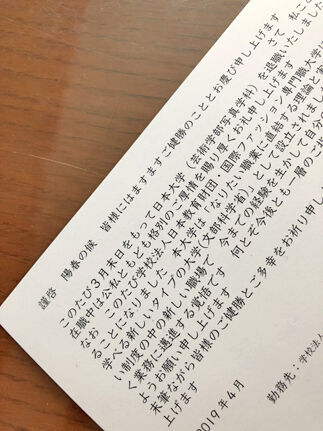 謹啓 陽春の候 皆様にはますますご健勝のこととお慶び申し上げます
さて 私こ
このたび3月末日をもって日本大学(芸術学部写真学科)を退職いたしました
在職中は公私ともども格別のご厚情を賜り厚くお礼申し上げます
なお このたび学校法人日本教育財団・国際ファッション専門職大学に
ることになりました 本大学は「なりたい職業に直結する理論と実
学べる新しいタイプの大学(文部科学省)」として設立されました
い制度の中の新しい職場で 今までの経験を生かして自分
く業務に邁進する覚悟です 何とぞ今後とも一層のご指
ようお願い申し上げます
末筆ながら皆様のご健勝とご多幸をお祈り申し
上げます
2019年4月
勤務先：学校法人